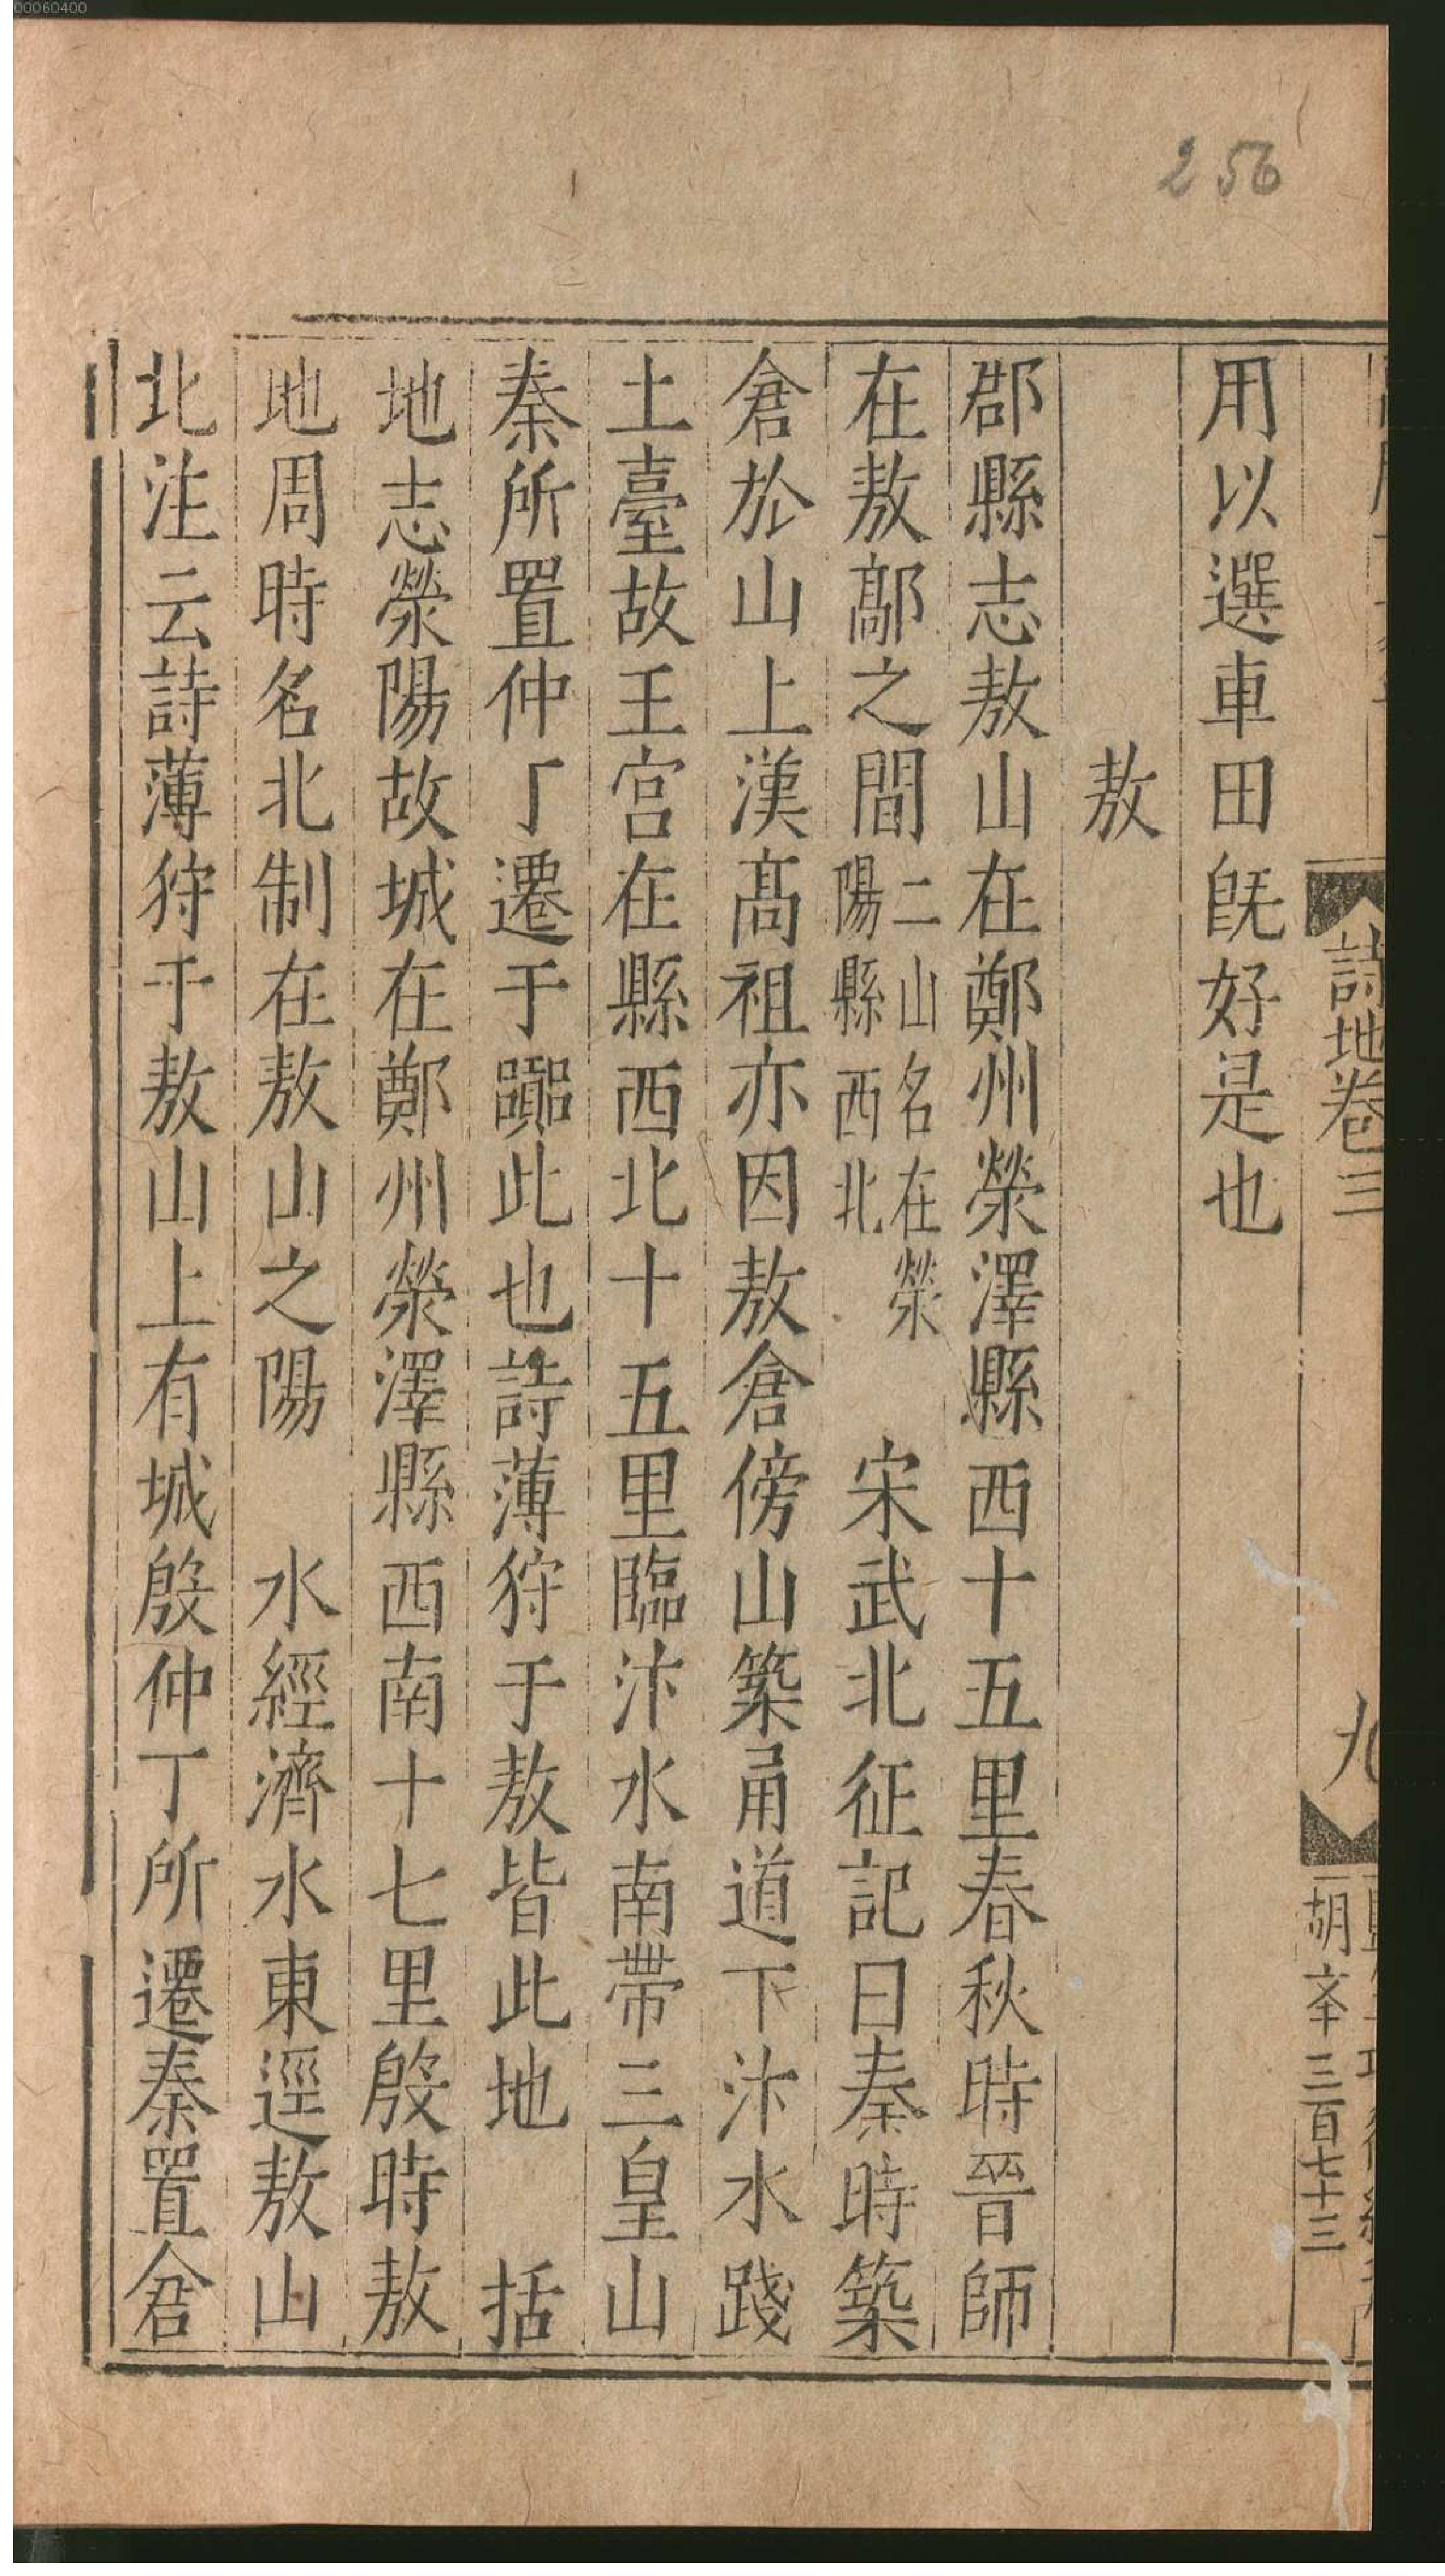 00060400
256
詩地卷三
九
胡 三百七十三
用以選車田旣好是也
敖
郡縣志敖山在鄭州滎澤縣西十五里春秋時晉師
在敖鄗之間二山名在滎陽縣西北 宋武北征記曰秦時築
倉於山上漢髙祖亦因敖倉傍山築甬道下汴水踐
土臺故王宫在縣西北十五里臨汴水南帶三皇山
秦所置仲丁遷于嚻此也詩薄狩于敖皆此地 括
地志滎陽故城在鄭州滎澤縣西南十七里殷時敖
地周時名北制在敖山之陽 水經濟水東逕敖山
北注云詩薄狩于敖山上有城殷仲丁所遷秦置倉